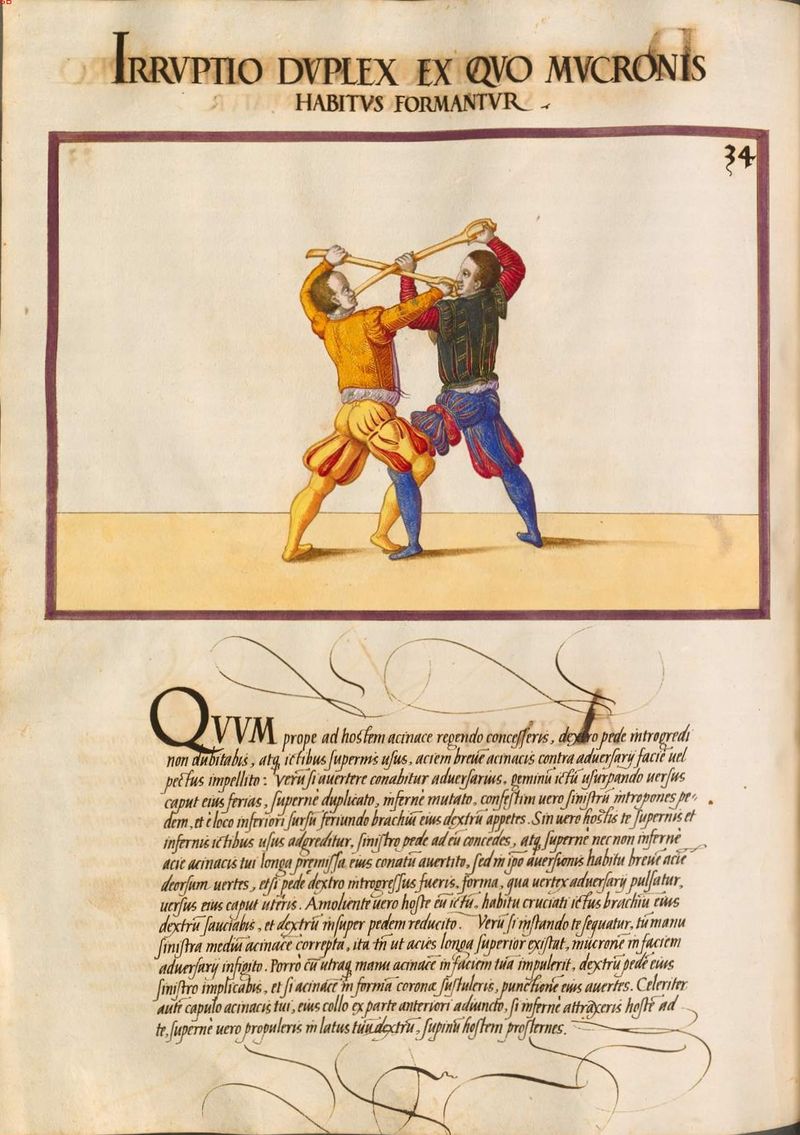 IRRVPTIO DVPLEX EX QVO MVCRONIS
HABITVS FORMANTVR
34
QVVM prope ad hostem acinace regendo concesseris, dextro pede introgredi
non dubitabis, atq. ictibus supernis usus, aciem breuē acinacis contra aduersarij faciē uel
pectus impellito: Verū si auertere conabitur aduersarius, geminū ictū usurpando uersus
caput eius ferias, supernè duplicato, infernè mutato, confestim uero sinistrū intropones pe-
dem, et è loco inferiori sursū feriundo brachiū eius dextrū appetes. Sin uero hostis te supernis et
infernis ictibus usus adgreditur, sinistro pede ad eū concedes, atq. supernè necnon infernè
acie acinacis tui longa praemissa eius conatū auertito, sed in ipō auersionis habitu breuē aciē
deorsum uertes, etsi pede dextro introgressus fueris, forma, qua uertex aduersarij pulsatur,
uersus eius caput utēris. Amoluente uero hoste eū ictū, habitu cruciati ictus brachiū eius
dextrū sauciabis, et dextrū insuper pedem reducito. Verū si instando te sequatur, tū manu
sinistra mediā acinacē correpta, ita tñ ut acies longa superior existat, mucronē in faciem
aduersarij infigito. Porrò cū utraq. manu acinacē in faciem tuā impulerit, dextrū pedē eius
sinistro implicabis, et si acinacē in forma coronae sustuleris, punctionē eius auertes. Celeriter
autē capulo acinacis tui, eius collo ex parte anteriori adiuncto, si infernè attraxeris hostē ad
te, supernè uero propuleris in latus tuū dextrū, supinū hostem prosternes.